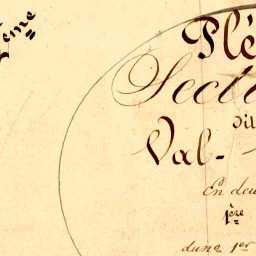 Plé
Secti
dit
Val-
En deu
1ère
dune 1er